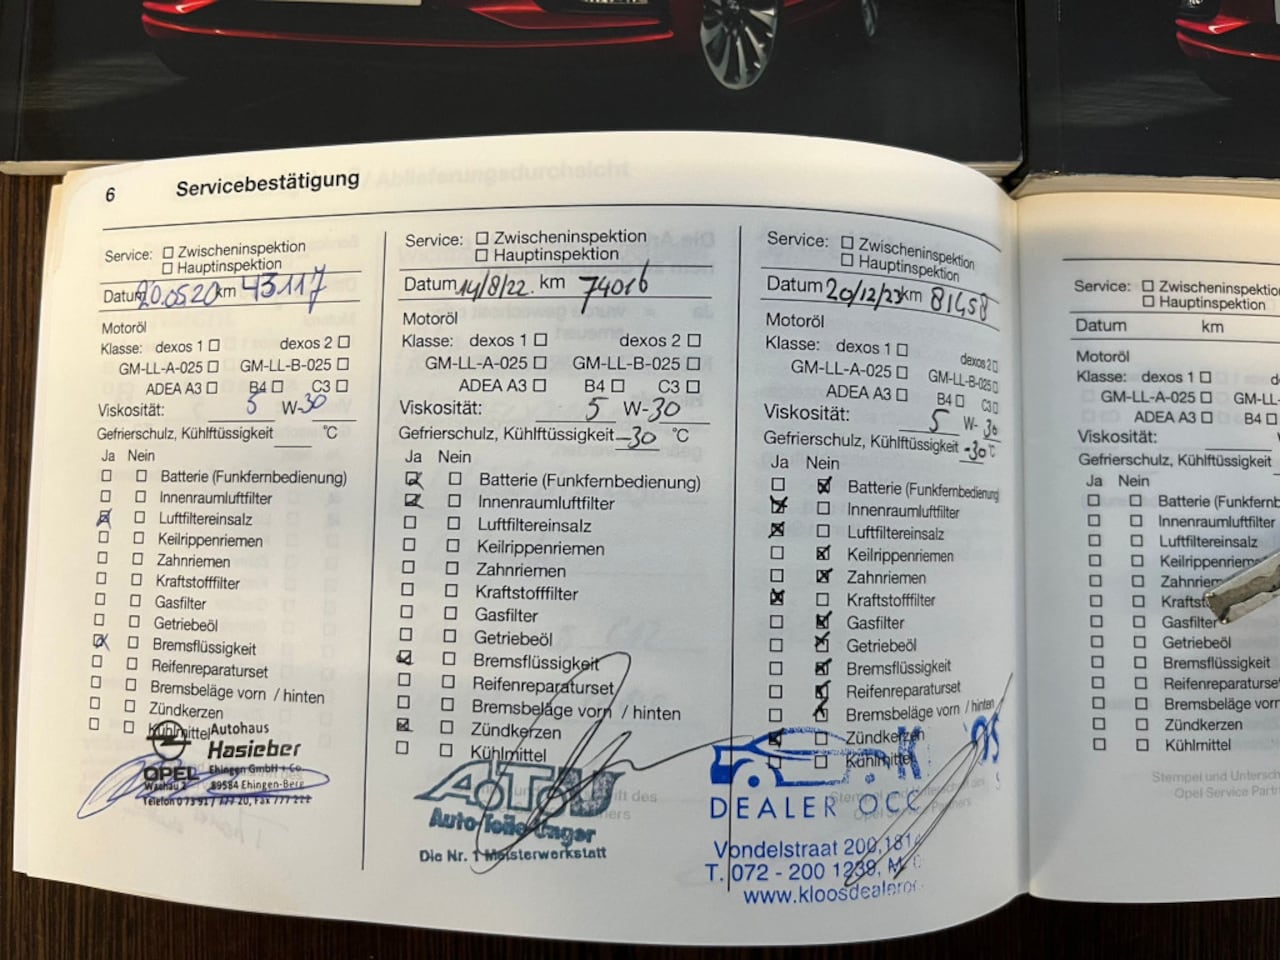 6 Servicebestätigung
Service: Zwischeninspektion
Hauptinspektion
Datum 20.05.20 km 43.117
Motoröl
Klasse: dexos 1 dexos 2
GM-LL-A-025 GM-LL-B-025
ADEA A3 B4 C3
Viskosität: 5 W-30
Gefrierschulz, Kühlftüssigkeit °C
Ja Nein
Batterie (Funkfernbedienung)
Innenraumluftfilter
Luftfiltereinsalz
Keilrippenriemen
Zahnriemen
Kraftstofffilter
Gasfilter
Getriebeöl
Bremsflüssigkeit
Reifenreparaturset
Bremsbeläge vorn / hinten
Zündkerzen
Kühlmittel
Autohaus
Hasieber
OPEL Ehingen GmbH + Co
89584 Ehingen-Berg
Service: Zwischeninspektion
Hauptinspektion
Datum 14/8/22. km 74016
Motoröl
Klasse: dexos 1 dexos 2
GM-LL-A-025 GM-LL-B-025
ADEA A3 B4 C3
Viskosität: 5 W-30
Gefrierschulz, Kühlftüssigkeit -30 °C
Ja Nein
Batterie (Funkfernbedienung)
Innenraumluftfilter
Luftfiltereinsalz
Keilrippenriemen
Zahnriemen
Kraftstofffilter
Gasfilter
Getriebeöl
Bremsflüssigkeit
Reifenreparaturset
Bremsbeläge vorn / hinten
Zündkerzen
Kühlmittel
ATU
Auto-Teile-Unger
Die Nr. 1 Meisterwerkstatt
Service: Zwischeninspektion
Hauptinspektion
Datum 20/12/23 km 81458
Motoröl
Klasse: dexos 1 dexos 2
GM-LL-A-025 GM-LL-B-025
ADEA A3 B4 C3
Viskosität: 5 W-30
Gefrierschulz, Kühlftüssigkeit -30 °C
Ja Nein
Batterie (Funkfernbedienung
Innenraumluftfilter
Luftfiltereinsalz
Keilrippenriemen
Zahnriemen
Kraftstofffilter
Gasfilter
Getriebeöl
Bremsflüssigkeit
Reifenreparaturset
Bremsbeläge vorn / hinten
Zündkerzen
Kühlmittel
DEALER OCC
Vondelstraat 200, 181
T. 072 - 200 1239, M.
www.kloosdealeroc
Service: Zwischeninspektion
Hauptinspektion
Datum km
Motoröl
Klasse: dexos 1
GM-LL-A-025 GM-LL-
ADEA A3 B4
Viskosität:
Gefrierschulz, Kühlftüssigkeit
Ja Nein
Batterie (Funkfernb
Innenraumluftfilter
Luftfiltereinsalz
Keilrippenrieme
Zahnriem
Kraftst
Gasfilter
Getriebeöl
Bremsflüssigkeit
Reifenreparaturse
Bremsbeläge vor
Zündkerzen
Kühlmittel
Stempel und Untersch
Opel Service Partn